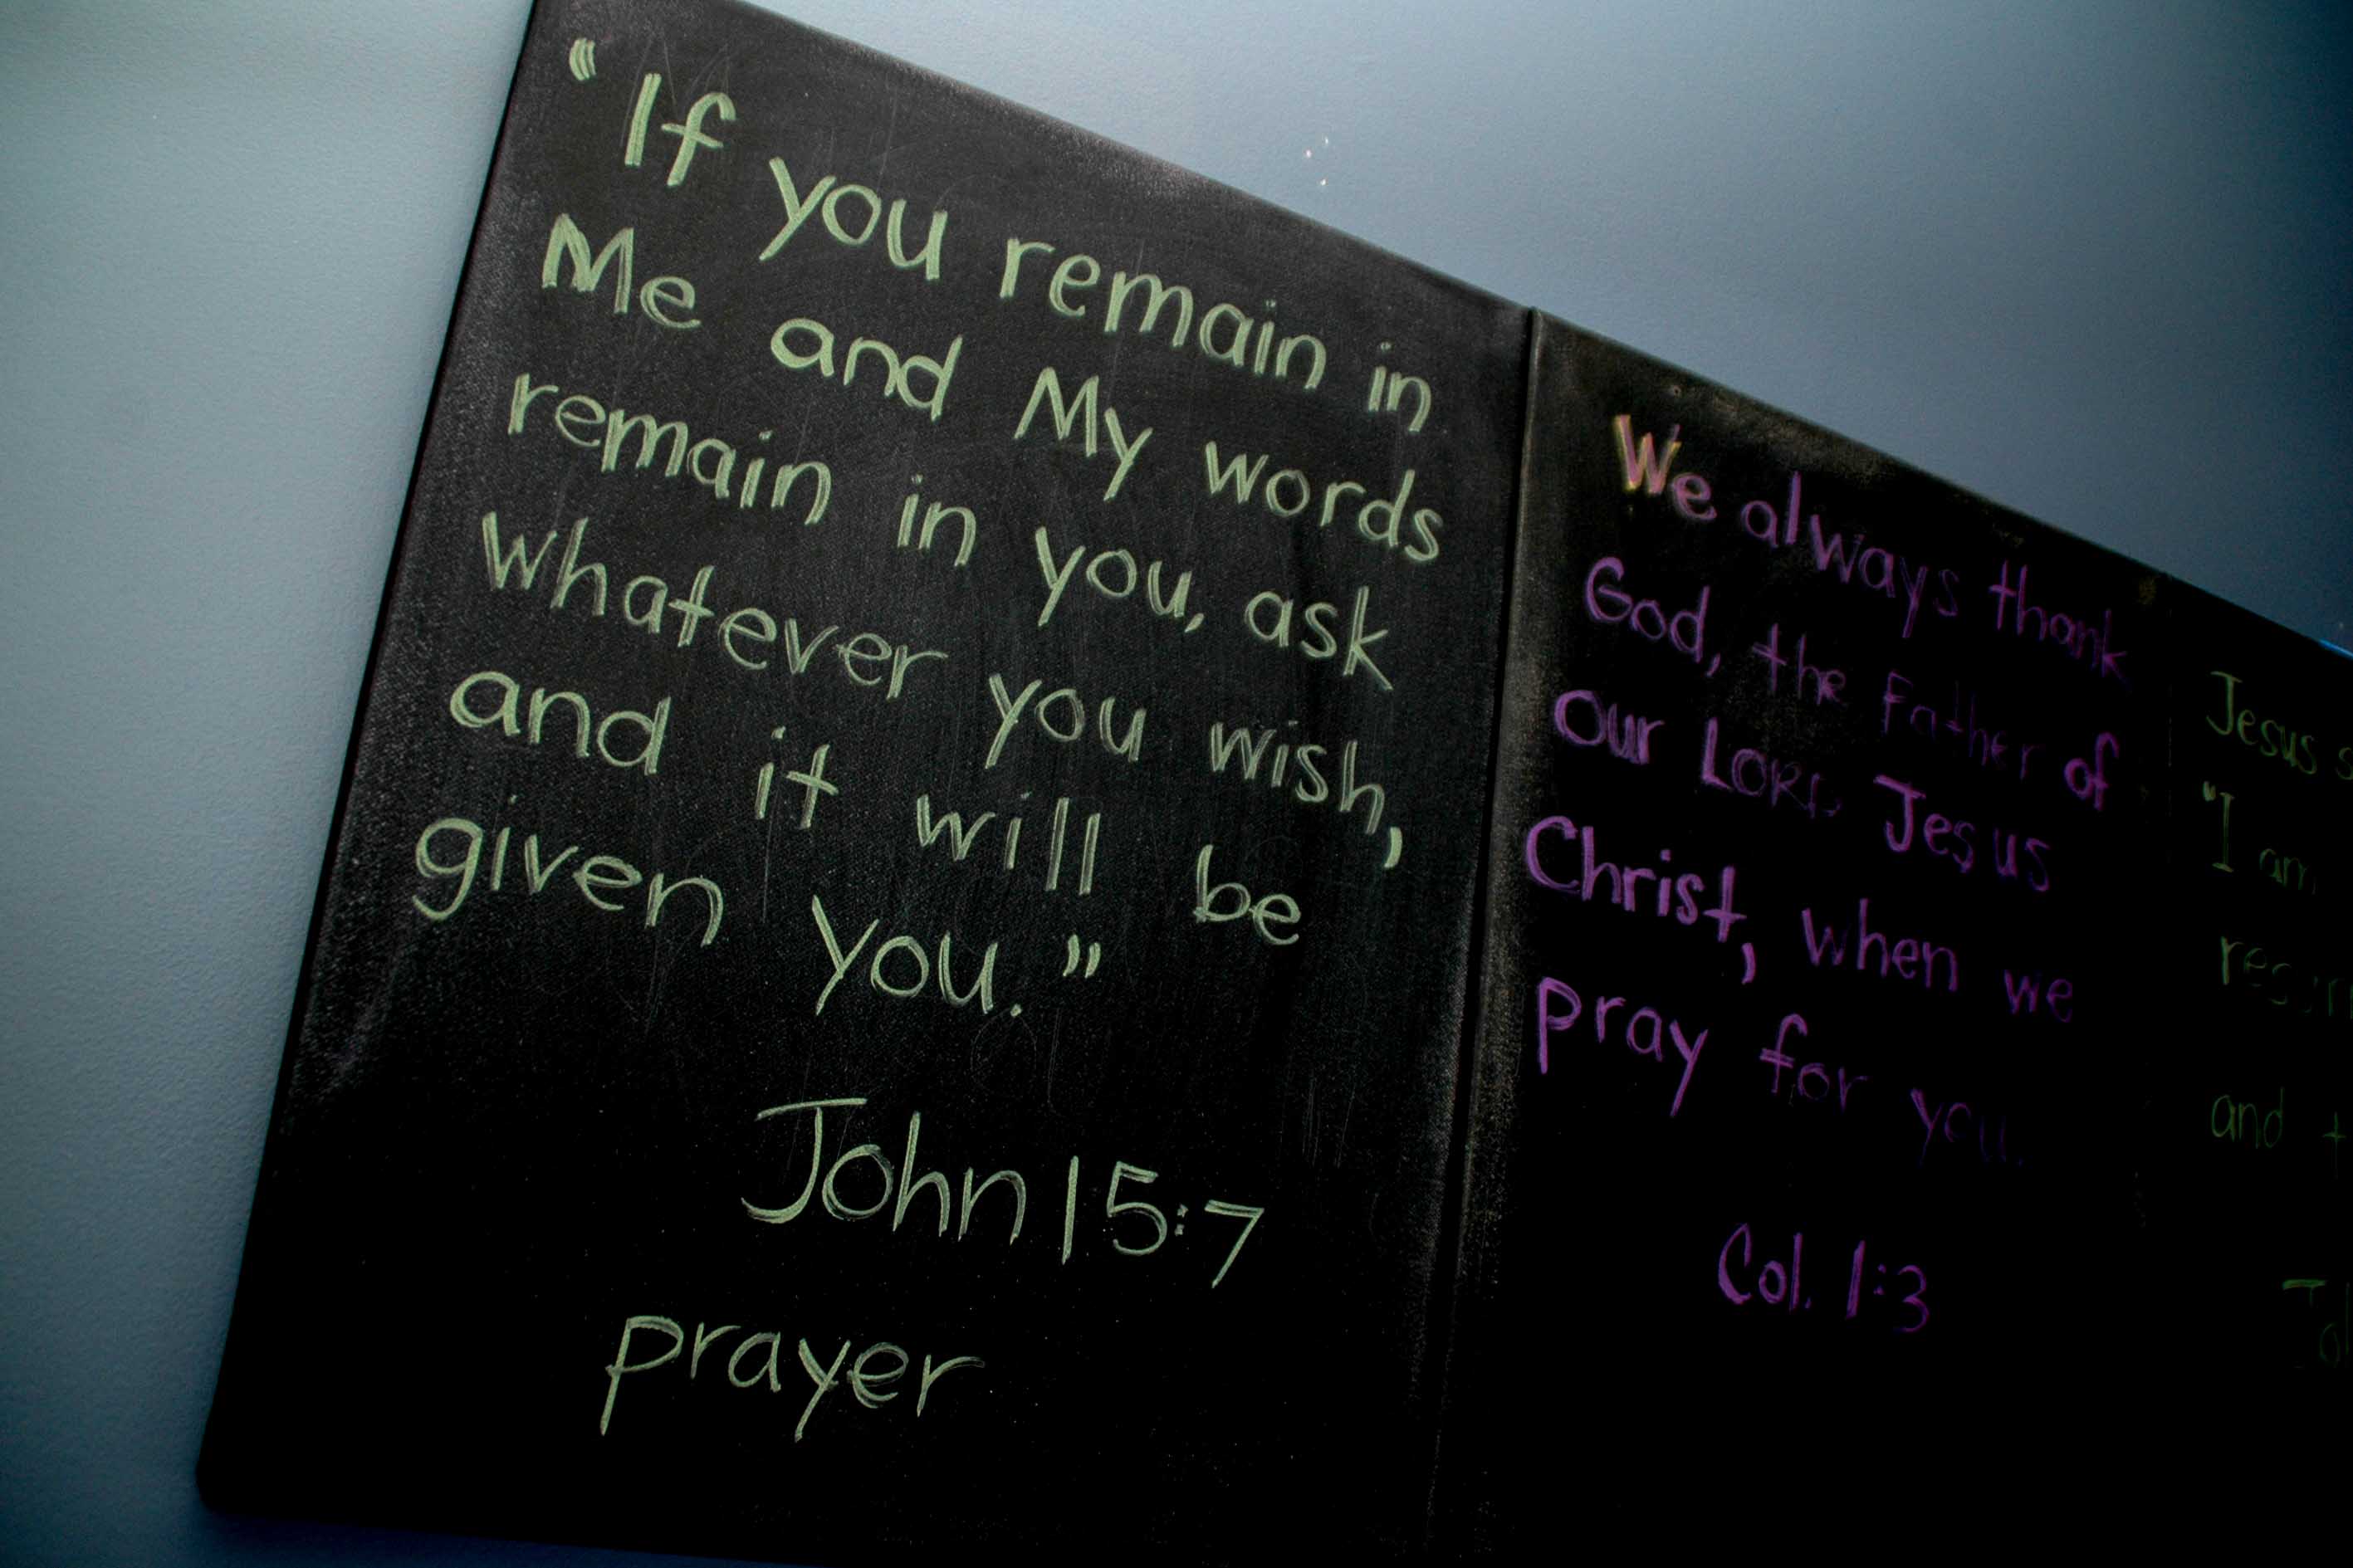 “If you remain in
Me and My words
remain in you, ask
whatever you wish,
and it will be
given you.”
John 15:7
prayer
We always thank
God, the Father of
our LORD Jesus
Christ, when we
pray for you.
Col. 1:3
Jesus s
"I am
and t